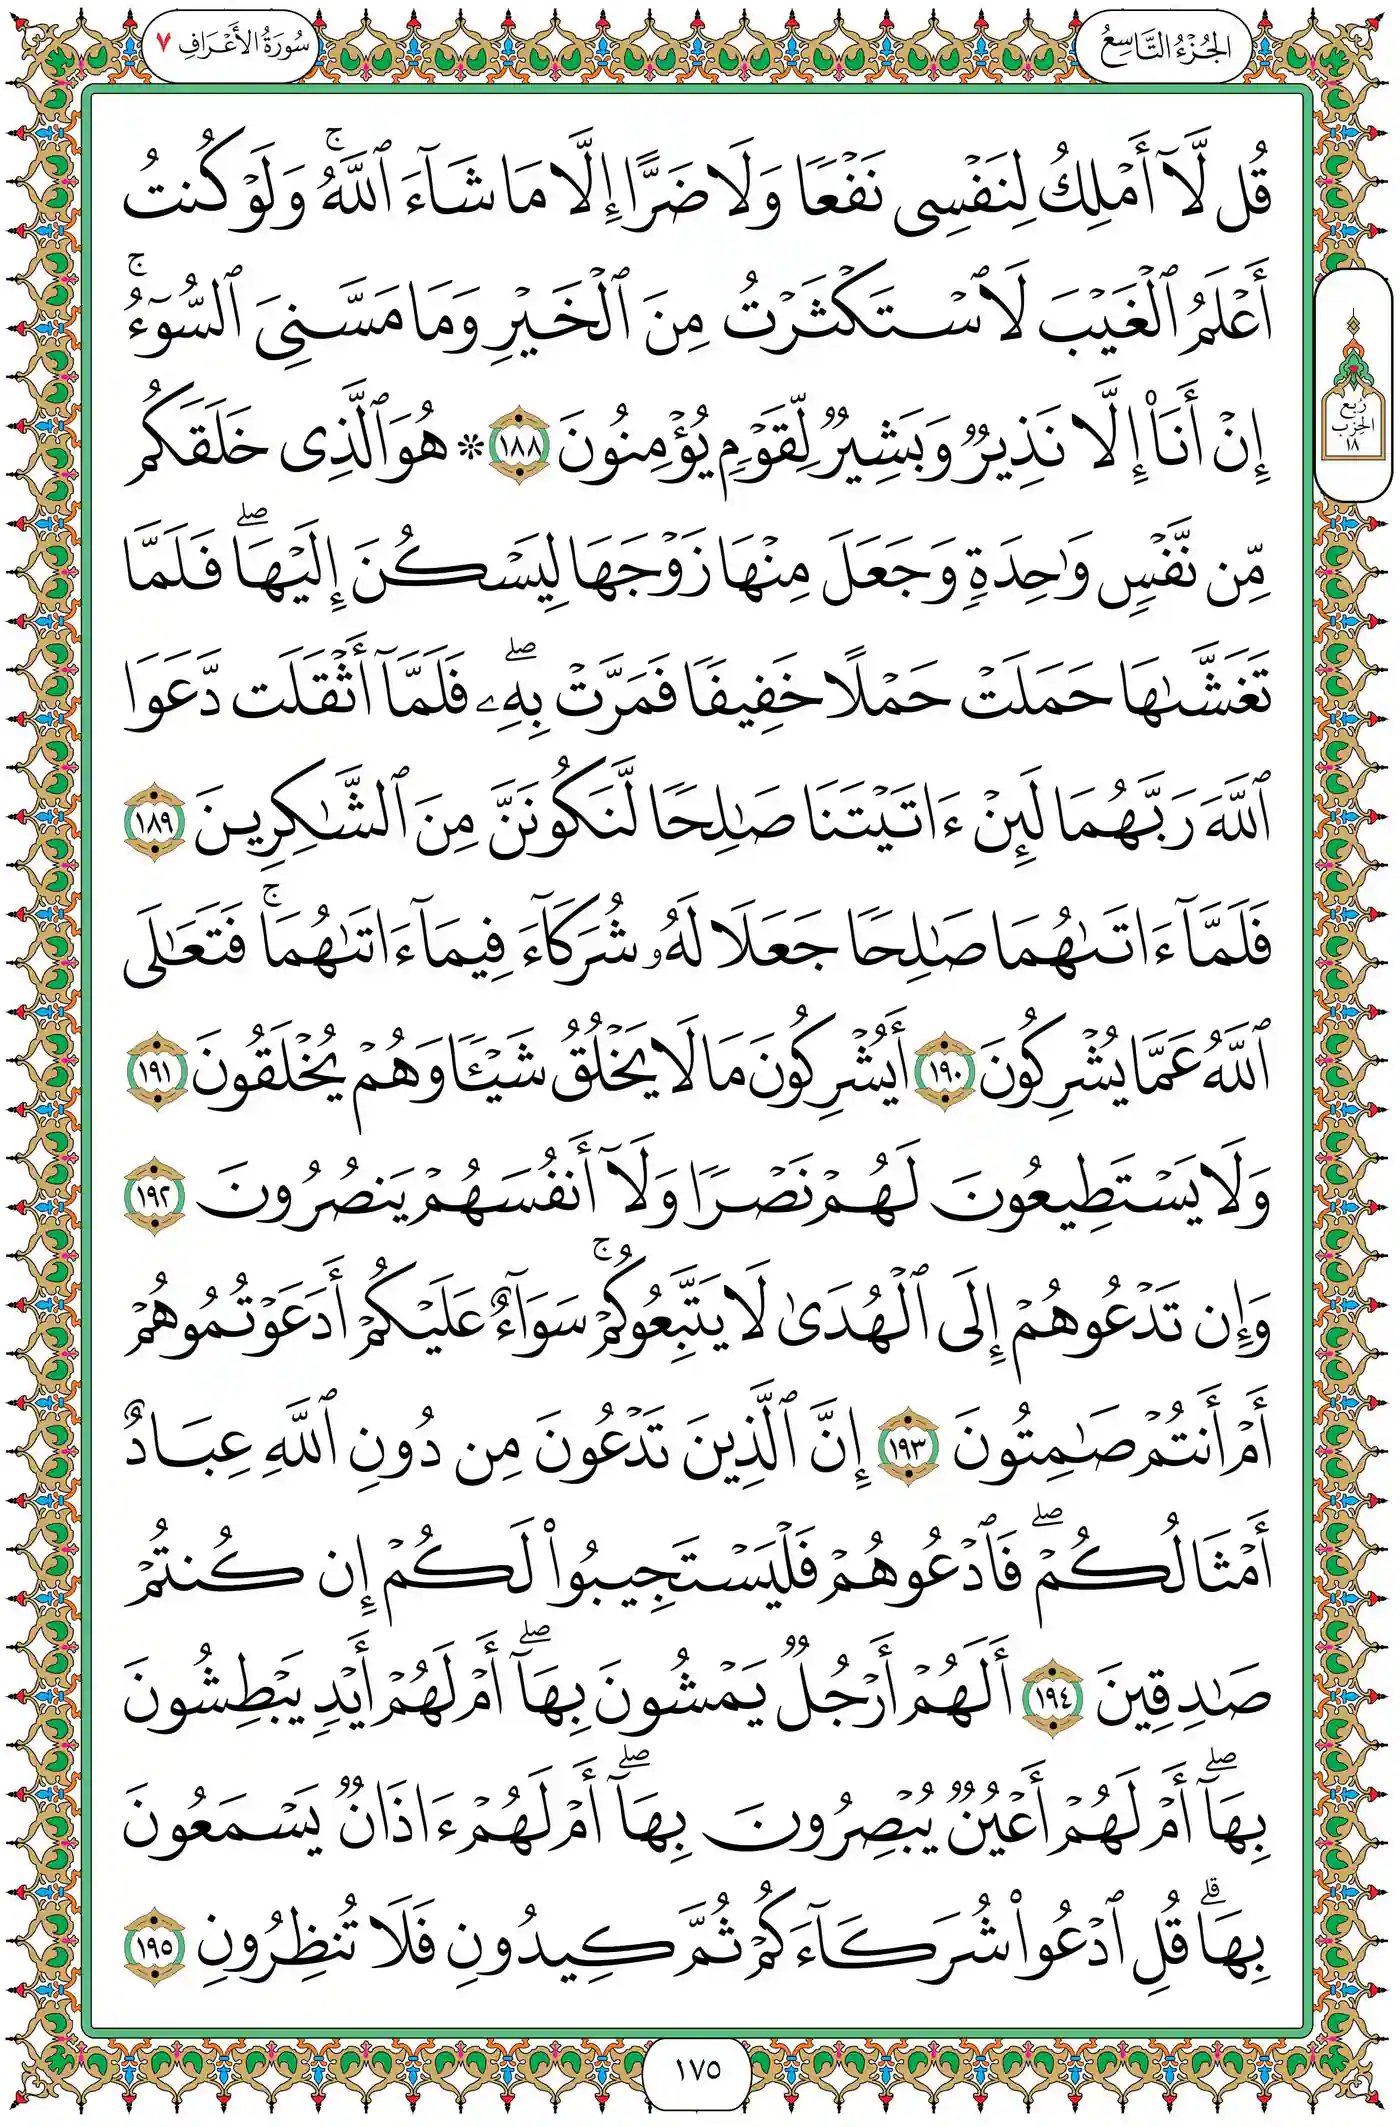 الجُزْءُ التَّاسِعُ
سُورَةُ الأَعْرَافِ ٧
قُل لَّآ أَمْلِكُ لِنَفْسِى نَفْعًا وَلَا ضَرًّا إِلَّا مَا شَآءَ ٱللَّهُ ۚ وَلَوْ كُنتُ
أَعْلَمُ ٱلْغَيْبَ لَٱسْتَكْثَرْتُ مِنَ ٱلْخَيْرِ وَمَا مَسَّنِىَ ٱلسُّوٓءُ ۚ
إِنْ أَنَا۠ إِلَّا نَذِيرٌ وَبَشِيرٌ لِّقَوْمٍ يُؤْمِنُونَ ١٨٨ * هُوَ ٱلَّذِى خَلَقَكُم
مِّن نَّفْسٍ وَٰحِدَةٍ وَجَعَلَ مِنْهَا زَوْجَهَا لِيَسْكُنَ إِلَيْهَا ۖ فَلَمَّا
تَغَشَّىٰهَا حَمَلَتْ حَمْلًا خَفِيفًا فَمَرَّتْ بِهِۦ ۖ فَلَمَّآ أَثْقَلَت دَّعَوَا
ٱللَّهَ رَبَّهُمَا لَئِنْ ءَاتَيْتَنَا صَٰلِحًا لَّنَكُونَنَّ مِنَ ٱلشَّٰكِرِينَ ١٨٩
فَلَمَّآ ءَاتَىٰهُمَا صَٰلِحًا جَعَلَا لَهُۥ شُرَكَآءَ فِيمَآ ءَاتَىٰهُمَا ۚ فَتَعَٰلَى
ٱللَّهُ عَمَّا يُشْرِكُونَ ١٩٠ أَيُشْرِكُونَ مَا لَا يَخْلُقُ شَيْـًٔا وَهُمْ يُخْلَقُونَ ١٩١
وَلَا يَسْتَطِيعُونَ لَهُمْ نَصْرًا وَلَآ أَنفُسَهُمْ يَنصُرُونَ ١٩٢
وَإِن تَدْعُوهُمْ إِلَى ٱلْهُدَىٰ لَا يَتَّبِعُوكُمْ ۚ سَوَآءٌ عَلَيْكُمْ أَدَعَوْتُمُوهُمْ
أَمْ أَنتُمْ صَٰمِتُونَ ١٩٣ إِنَّ ٱلَّذِينَ تَدْعُونَ مِن دُونِ ٱللَّهِ عِبَادٌ
أَمْثَالُكُمْ ۖ فَٱدْعُوهُمْ فَلْيَسْتَجِيبُوا۟ لَكُمْ إِن كُنتُمْ
صَٰدِقِينَ ١٩٤ أَلَهُمْ أَرْجُلٌ يَمْشُونَ بِهَآ ۖ أَمْ لَهُمْ أَيْدٍ يَبْطِشُونَ
بِهَآ ۖ أَمْ لَهُمْ أَعْيُنٌ يُبْصِرُونَ بِهَآ ۖ أَمْ لَهُمْ ءَاذَانٌ يَسْمَعُونَ
بِهَا ۗ قُلِ ٱدْعُوا۟ شُرَكَآءَكُمْ ثُمَّ كِيدُونِ فَلَا تُنظِرُونِ ١٩٥
رُبع
الحِزب
١٨
١٧٥